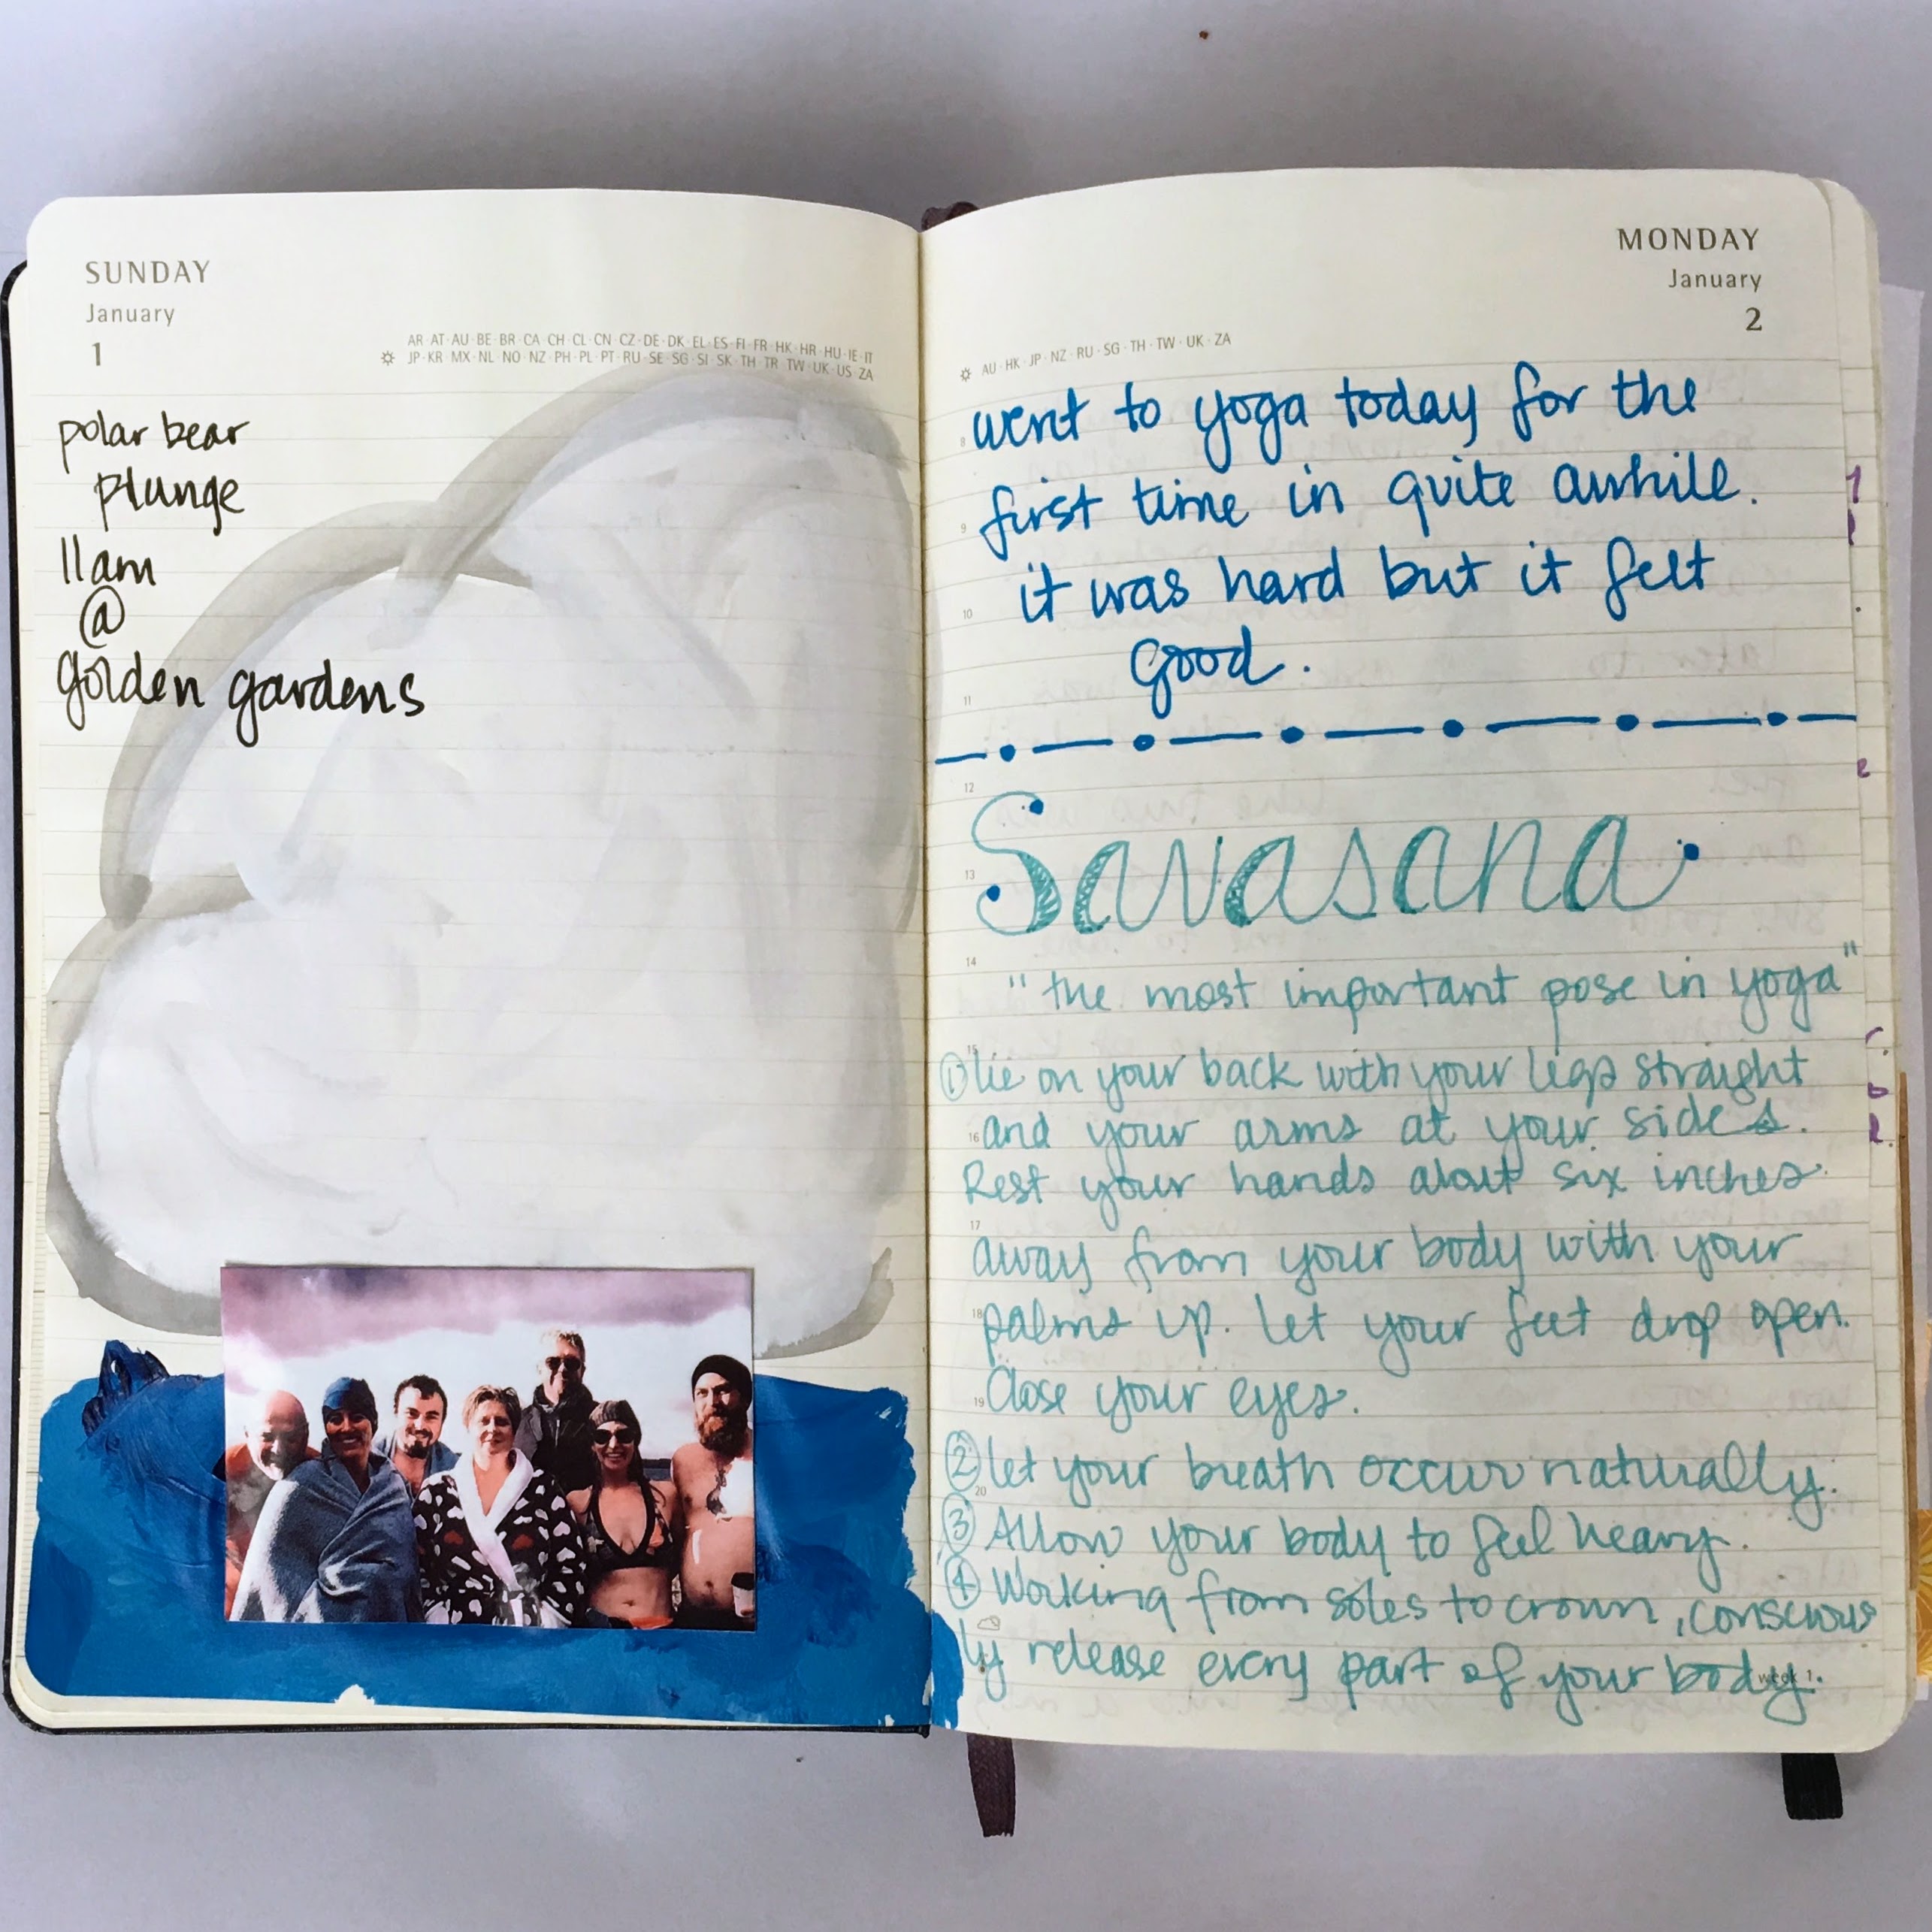 SUNDAY
January
1
AR·AT·AU·BE·BR·CA·CH·CL·CN·CZ·DE·DK·EL·ES·FI·FR·HK·HR·HU·IE·IT
JP·KR·MX·NL·NO·NZ·PH·PL·PT·RU·SE·SG·SI·SK·TH·TR·TW·UK·US·ZA
polar bear
plunge
11am
@
golden gardens
MONDAY
January
2
AU·HK·JP·NZ·RU·SG·TH·TW·UK·ZA
8 went to yoga today for the
9 first time in quite awhile.
10 it was hard but it felt
good.
11
12
13 Savasana
14
"the most important pose in yoga"
15
① lie on your back with your legs straight
16 and your arms at your sides.
Rest your hands about six inches
17
away from your body with your
18 palms up. let your feet drop open.
19 Close your eyes.
② let your breath occur naturally.
20
③ Allow your body to feel heavy.
④ Working from soles to crown, conscious
ly release every part of your body.
week 1